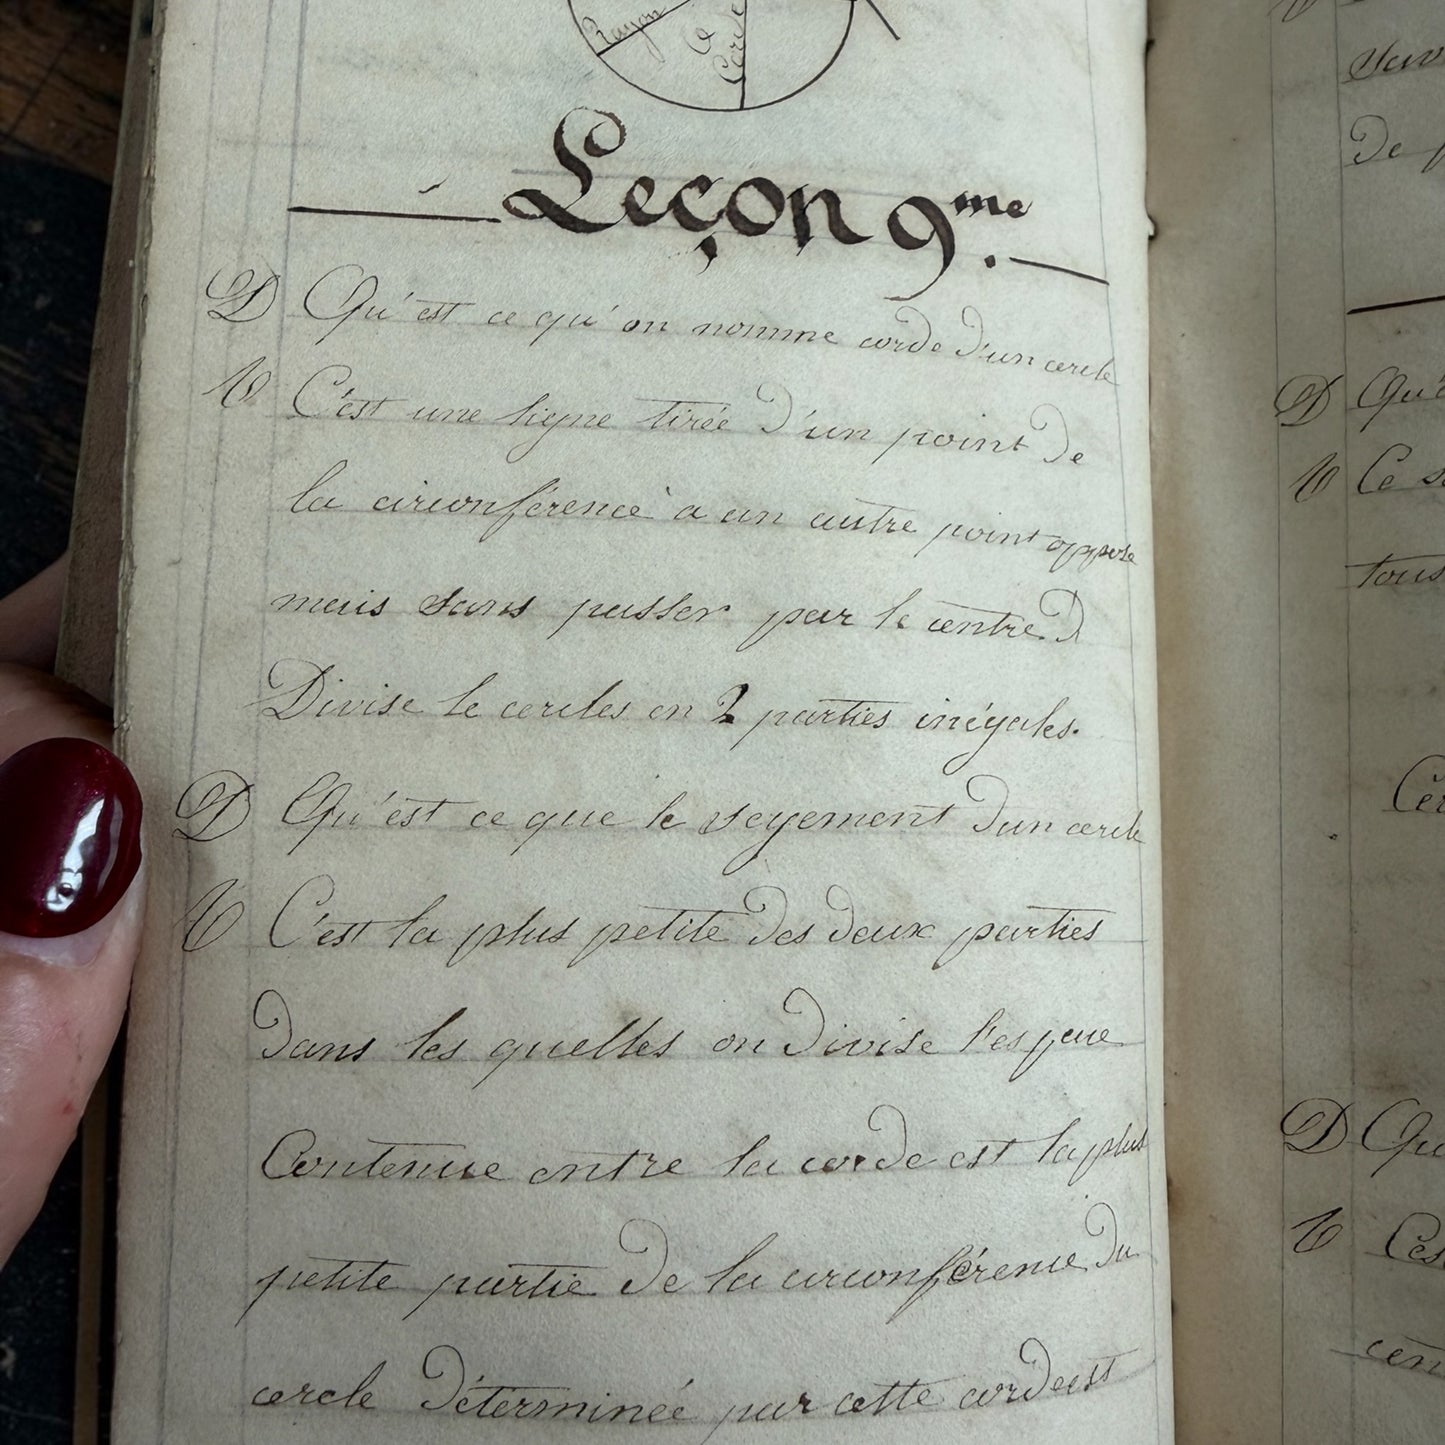 Rayon
la
Corde
Leçon 9.me
D Qu'est ce qu'on nomme corde d'un cercle
C'est une ligne tirée d'un point de
la circonférence à un autre point opposé
mais sans passer par le centre
Divise le cercles en 2 parties inégales.
D Qu'est ce que le segement d'un cercle
C'est la plus petite des deux parties
dans les quelles on divise l'espace
Contenue entre la corde est la plus
petite partie de la circonférence du
cercle déterminée par cette corde est
de
D Qu'e
Ce s
tous
Cer
D Qu
Ces
cen